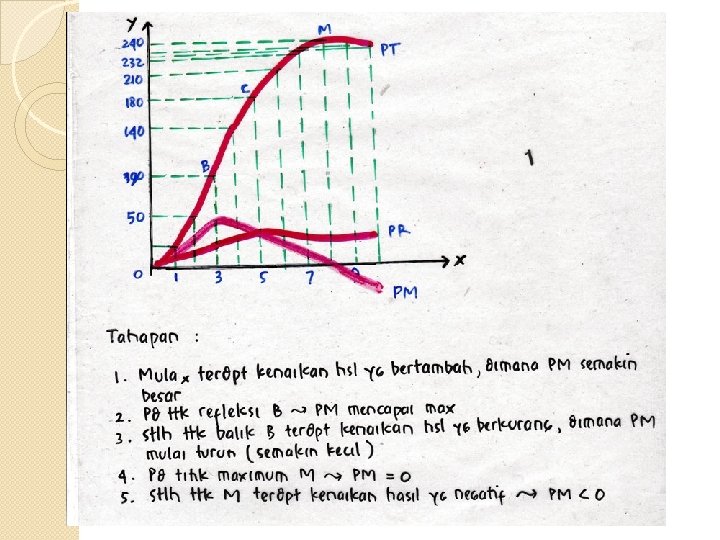 Y
M
240
PT
232
210
C
180
140
B
190
50
PR
0
1
3
5
7
9
X
PM
1
Tahapan :
1. Mula x terdpt kenaikan hsl yg bertambah, dimana PM semakin
besar
2. Pd ttk refleksi B ~> PM mencapai max
3. Stlh ttk balik B terdpt kenaikan hsl yg berkurang, dimana PM
mulai turun (semakin kecil)
4. Pd titik maximum M ~> PM = 0
5. Stlh ttk M terdpt kenaikan hasil yg negatif ~> PM < 0